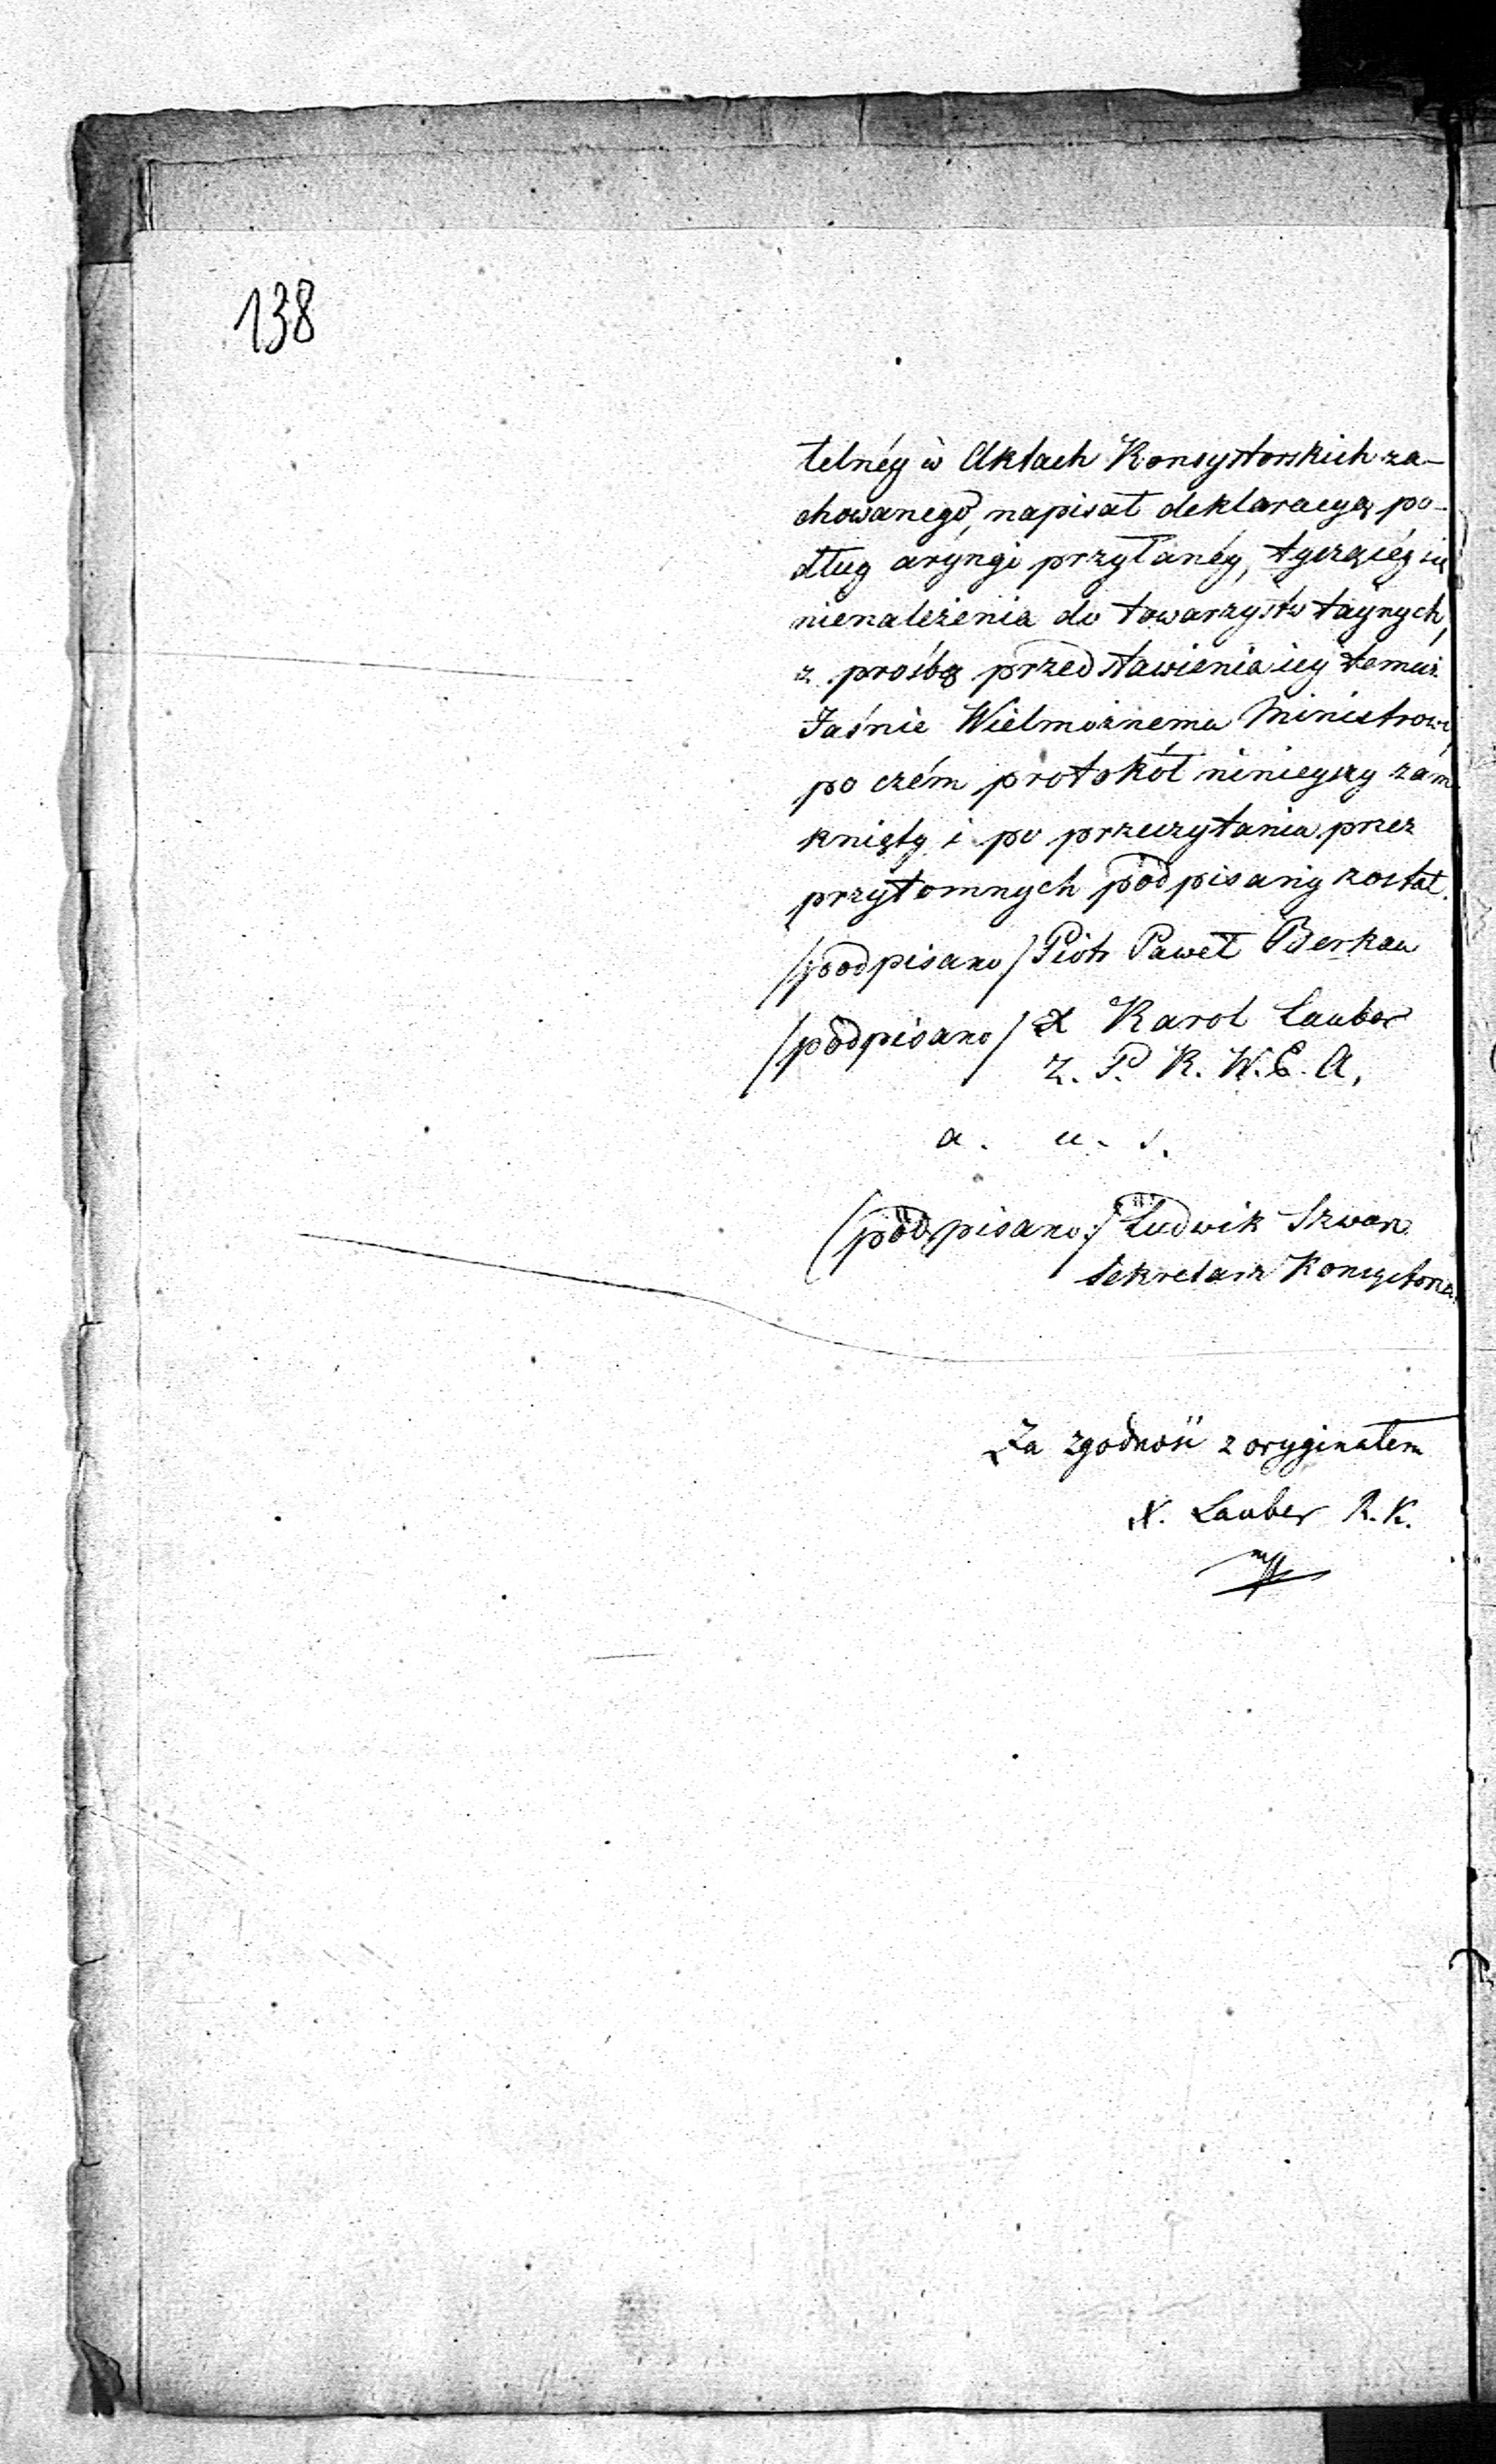 138
telnéy w Aktach Konsystorskich za-
chowanego, napisał deklaracyą po-
dług aryngi przyłanéy, tyczącéy się
nienależenia do towarzystw taynych,
z prośbą przedstawienia iey temuż
Jaśnie Wielmożnemu Ministrowi,
po czém protokół ninieyszy zam-
knięty i po przeczytaniu przez
przytomnych podpisany został.
/podpisano/ Piotr Paweł Berkau
/podpisano/ X Karol Lauber
Z. P. K. W. E. A.
a. u. s.
/podpisano:/ Ludwik Szwarz
Sekretarz Konsystorza.
Za zgodność z oryginałem
X. Lauber R. K.